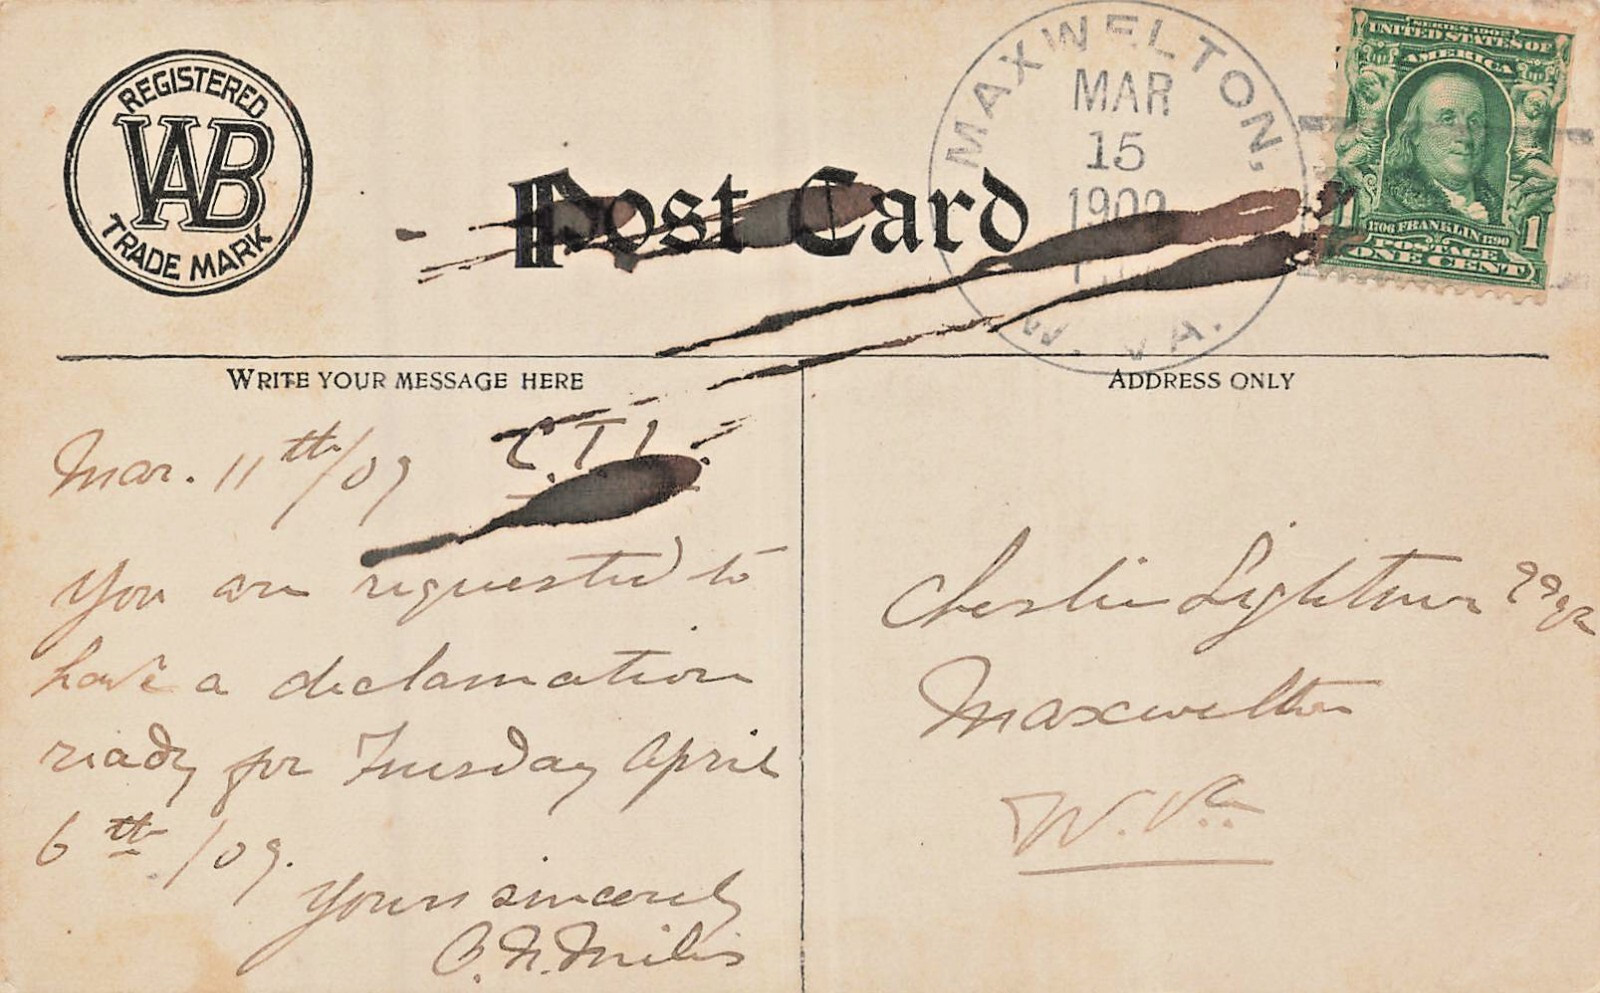 REGISTERED
WAB
TRADE MARK
Post Card
MAXWELTON,
MAR
15
1909
W. VA.
SERIES 1902
UNITED STATES OF
AMERICA
1706 FRANKLIN 1790
1
POSTAGE
ONE CENT
WRITE YOUR MESSAGE HERE
Mar. 11th/09
You are requested to
have a declamation
ready for Tuesday April
6th/09.
Yours sincerely
ADDRESS ONLY
Maxwelton
W. Va.